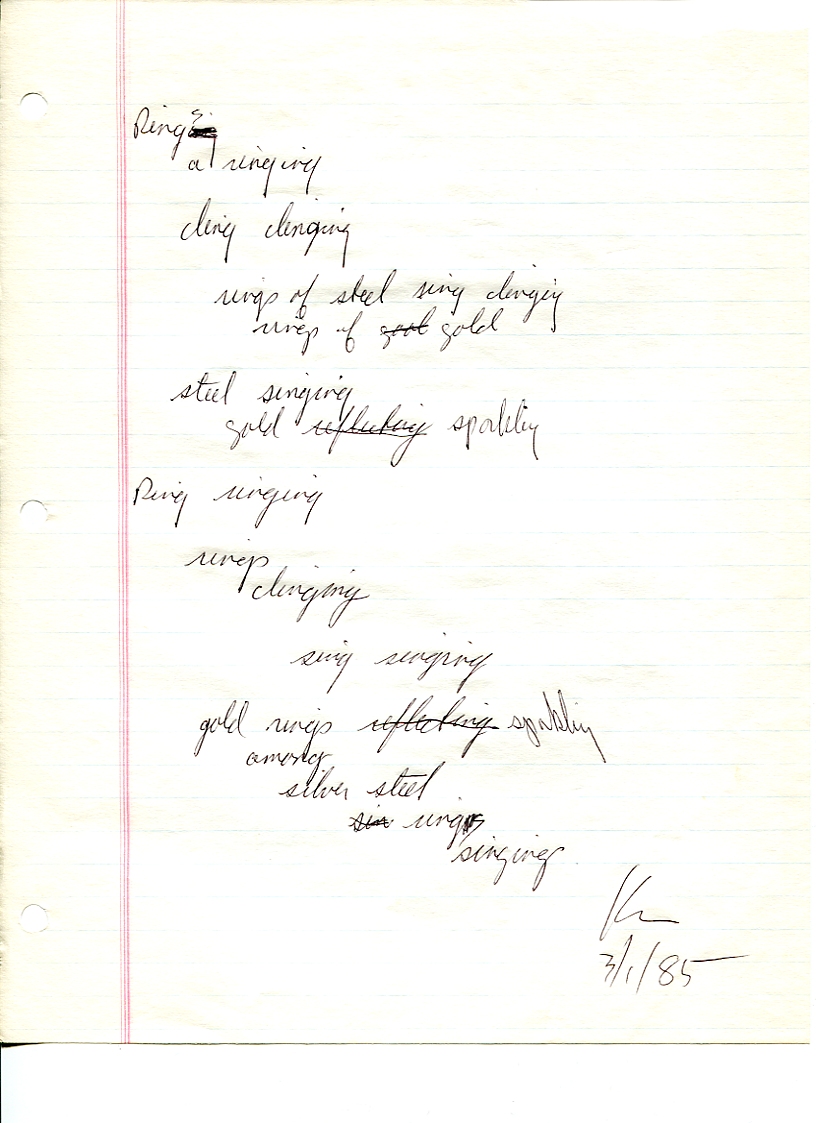 Rings
a ringing
cling clinging
rings of steel sing clinging
rings of gold
steel singing
gold reflecting sparkling
Ring ringing
rings
clinging
sing singing
gold rings reflecting sparkling
among
silver steel
sin rings
singing
3/1/85